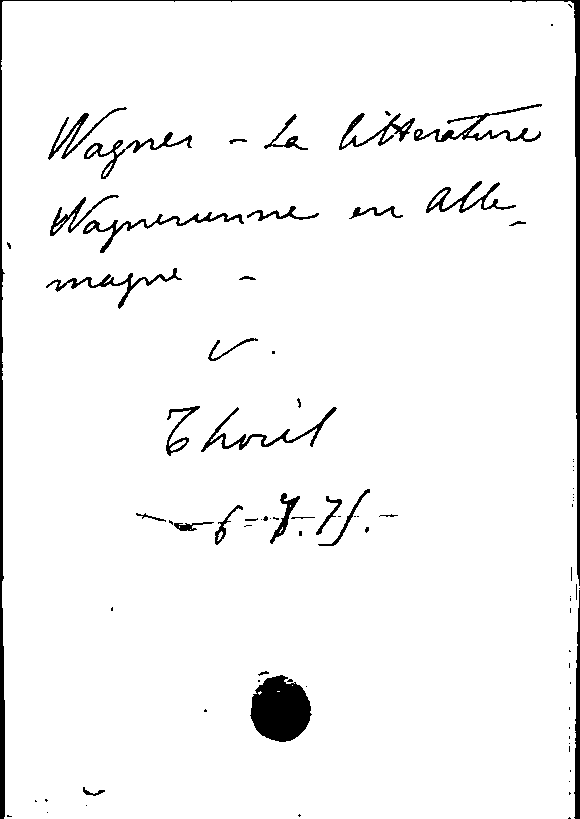 Wagner - La littérature
Wagnerienne en Alle-
magne -
v.
Thorel
6.7.75.